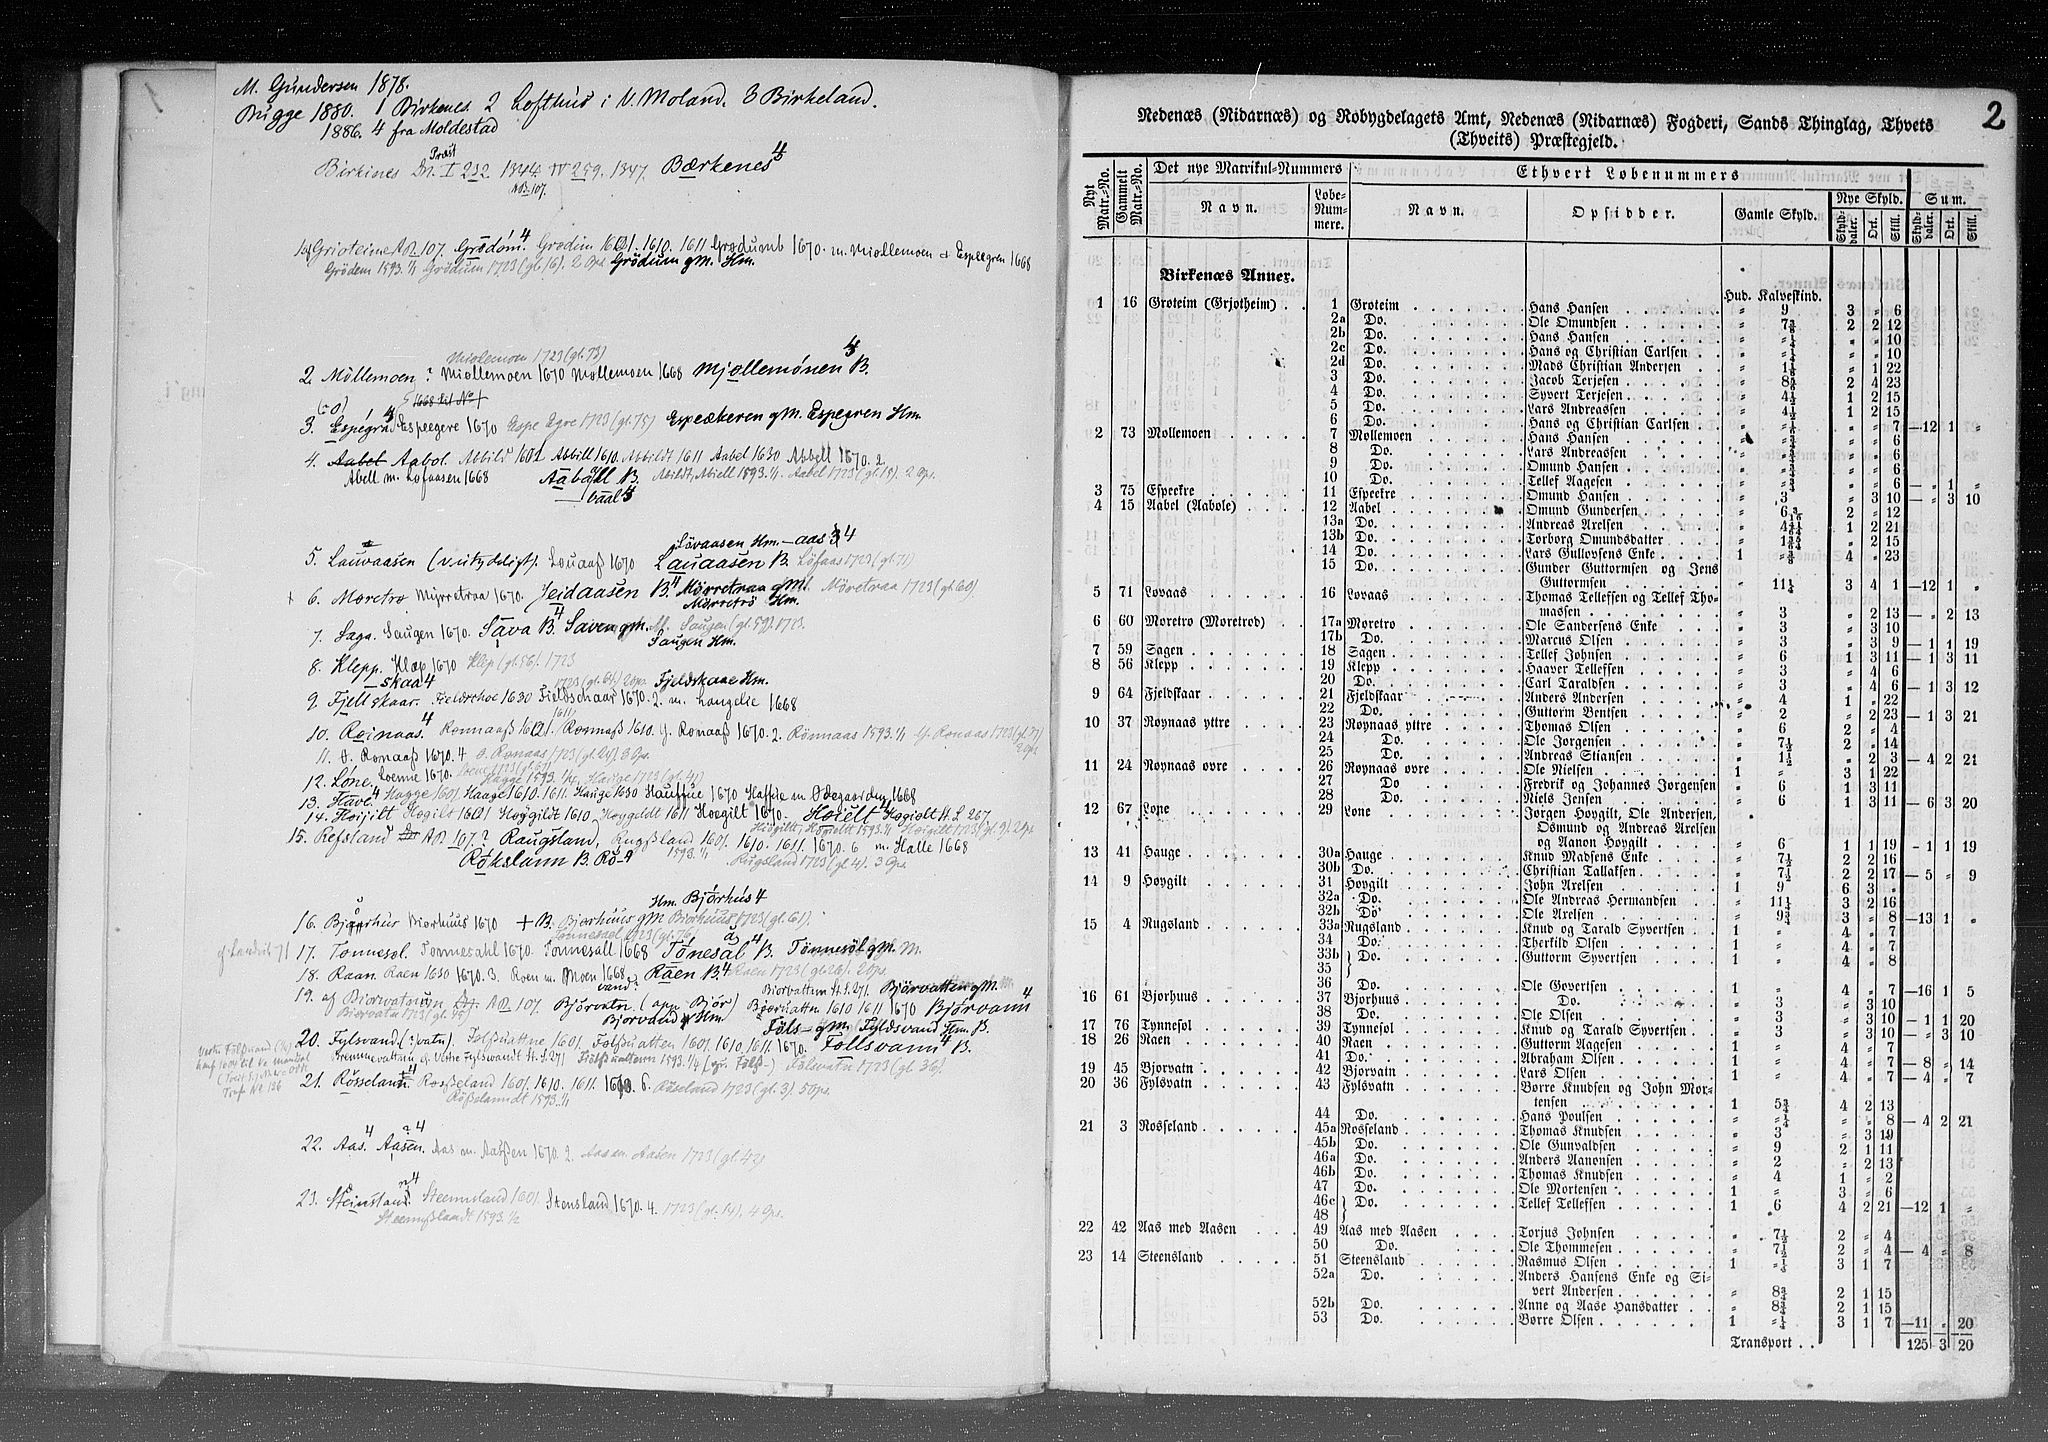 M. Gundersen 1878.
Bugge 1880. 1 Birkenes 2 Lofthus i V. Moland. 3 Birkeland.
1886. 4 fra Moldestad
Præst
Birkines Dn. I 232. 1344. IV 259. 1347. Bærkenes 4
AB. 107.
Grioteime AB 107. Grødøm. 4 Grødim 1601. 1610. 1611 Grødumb 1670. m. Miøllemoen + Espeegren 1668
Grødem 1593. 1/1 Grødum 1723 (gl. 16). 2 Gps. Grödum gM. Hm.
Miølemoen 1723 (gl. 73)
2. Möllemoen? Miøllemoen 1670 Møllemoen 1668 Mjøllemónen B.
3. Espégrä Espeegere 1670 Espe Egre 1723 (gl. 75) Espeækeren gM. Espegren Hm.
4. Aabel Aabol. Abild 1601 Abbill 1610. Abbildt 1611 Aabel 1630 Abbell 1670. 2
Abell m. Lofaasen 1668
Løvaasen Hm. -aas 3 4
5. Lauvaasen (v utydeligt). Louaaß 1670 Lauaasen B. Löfaas 1723 (gl. 71)
6. Møretrø Myrretraa 1670. Jeidaasen B. 4 Mørretraa gM. Møretraa 1723 (gl. 60)
Mørretrø Hm.
7. Saga. Saugen 1670. Sava B. 4 Saven gM. Saugen (gl. 59) 1723.
Saugen Hm.
8. Klepp. Klep 1670 Klep (gl. 56). 1723
-skaa 4 1723 (gl. 64) 2 Gps. Fjeldskaae Hm.
9. Fjellskaar. Fieldschaar 1670. 2. m. Langelie 1668
10. Reinaas. 4 Rønnaaß 1601. Rønnaß 1610. Y. Rønaaß 1670. 2. Rönnaas 1593. 1/1
11. Ø. Rønaaß 1670. 4 Ø. Rønaas 1723 (gl. 24) 3 Gps.
12. Lóne. Loenne 1670.
13. Have. 4 Hagge 1601. Haage 1610. 1611. Hauge 1630 Hauffue 1670 Haffue m Ødegaarden 1668
14. Höijilt Høgilt 1601 Høygildt 1610 Høygeldt 1611 Høegilt 1670. Høielt Høgiolt St. L 267.
15. Refsland AB 107.? Raugsland, Rugßland 1601. 1610. 1611. 1670. 6 m Halle 1668
Røkslann B. Rø-4 1593. 1/1 Rugsland 1723 (gl. 4). 3 Gps.
Hm. Bjørhús 4
16. Bjørrhus Biørhuus 1670 + B. Biørhuus gM Biørhuus 1723 (gl. 61).
Tønnesøel 1723 (gl. 76)
17. Tonnesøl. Tønnesahl 1670. Tønnesall 1668 Tónesál 4 B. Tönnesöl gM.
18. Raan. Raen 1630 1670. 3. Roen m. Moen 1668 Raen B. 4 Raen 1723 (gl. 26). 2 Gps.
Biorvattnn St. L. 271. Björvatten gM.
19. af Biorwatnum AB 107. Bjórvatn. (opp. Bjór) Biøruatten 1610 1611 1670 Bjørvann 4
Biørvatn 1723 (gl. 45) Biorvand Hm
Föls- gM. (Fyldsvand Hm. B.
20. Fylsvand (: vatn). Følßuattne 1601. Følßuatten 1601. 1610. 1611. 1670. Føllsvann 4 B.
Følsvatn 1723 (gl. 36).
21. Rösseland. 4 Rosßeland 1601. 1610. 1611. 1670. 6. Røseland 1723 (gl. 3). 5 Gps.
Rößelanndt 1593. 1/1
22. Aas. 4 Aasen. 4 Aas m. Aaßen 1670. 2. Aas m. Aasen 1723 (gl. 42)
23. Steinsland. 4 Steennsland 1601. Stensland 1670. 4. 1723 (gl. 14). 4 Gps.
Steennßlandt 1593. 1/2
2
Nedenæs (Nidarnæs) og Robygdelagets Amt, Nedenæs (Nidarnæs) Fogderi, Sands Thinglag, Thvets
(Thveits) Præstegjeld.
Nyt Matr.-No. Gammelt Matr.-No. Det nye Matrikul-Nummers Ethvert Løbenummers
Navn. Løbe-Nummere. Navn. Opsidder. Gamle Skyld. Nye Skyld. Sum.
Skylddaler. Ort. Skill. Skylddaler. Ort. Skill.
Birkenæs Annex.
Hud. Kalveskind.
1 16 Groteim (Grjotheim) . . 1 Groteim Hans Hansen „ 9 3 „ 6
2a Do. Ole Omundsen „ 7⅜ 2 2 12
2b Do. Hans Hansen „ „ 10
2c Do. Hans og Christian Carlsen „ „ 10
2d Do. Mads Christian Andersen „ 1 22
3 Do. Jacob Terjesen 2 4 23
4 Do. Syvert Terjesen „ 4½ 1 2 15
5 Do. Lars Andreassen „ 4½ 1 2 15
6 Do. Hans og Christian Carlsen „ „ 7 —12 1 „
2 73 Mollemoen 7 Mollemoen Hans Hansen „ „ 6
8 Do. Lars Andreassen „ „ 6
9 Do. Omund Hansen „ „ 6
10 Do. Tellef Aagesen „ „ 6 — „ 1 „
3 75 Espeekre 11 Espeekre Omund Hansen „ 3 „ 3 10 — „ 3 10
4 15 Aabel (Aabole) 12 Aabel Omund Gundersen 2 „ 12
13a Do. Andreas Axelsen 1 2 21
13b Do. Torborg Omundsdatter „ 2 15
14 Do. Lars Gullovsens Enke 1 4 „ 23
15 Do. Gunder Guttormsen og Jens
Guttormsen „ 11¼ 3 4 1 —12 1 „
5 71 Lovaas 16 Lovaas Thomas Tellefsen og Tellef Tho-
massen „ 3 „ 2 13 — „ 2 13
6 60 Moretro (Moretrod) 17a Moretro Ole Sandersens Enke „ 3 „ 3 10
17b Do. Marcus Olsen „ 3 „ 3 9 — 1 1 19
7 59 Sagen 18 Sagen Tellef Johnsen „ 6 1 3 11 — 1 3 11
8 56 Klepp 19 Klepp Haaver Tellefsen „ 3 „ 4 6
20 Do. Carl Taraldsen „ 3 „ 4 6 — 1 3 12
9 64 Fjeldskaar 21 Fjeldskaar Anders Andersen „ 4 1 „ 22
22 Do. Guttorm Bentsen „ 2 „ 2 23 — 1 3 21
10 37 Roynaas yttre 23 Roynaas yttre Thomas Olsen „ 6 2 „ 4
24 Do. Ole Jørgensen „ 7½ 2 „ 14
25 Do. Andreas Stiansen „ 1½ „ 2 3 — 4 2 21
11 24 Roynaas ovre 26 Roynaas ovre Ole Nielsen 1 „ 3 1 22
27 Do Fredrik og Johannes Jørgensen „ 6 1 3 11
28 Do. Niels Jensen „ 6 1 3 11 — 6 3 20
12 67 Lone 29 Lone Jørgen Hoygilt, Ole Andersen,
Osmund og Andreas Axelsen
og Aanon Hoygilt „ 6 1 1 19 — 1 1 19
13 41 Hauge 30a Hauge Knud Madsens Enke „ 7½ 2 2 16
30b Do. Christian Tallaksen „ 7½ 2 2 17 — 5 „ 9
14 9 Hoygilt 31 Hoygilt John Axelsen 1 9 6 3 „
32a Do. Ole Andreas Hermandsen „ 11¼ 3 2 16
32b Do Ole Axelsen „ 9¾ 3 „ 8 —13 1 „
15 4 Rugsland 33a Rugsland Knud og Tarald Syvertsen 1 „ 4 „ 7
34 Do. Therkild Olsen 1 „ 4 „ 7
33b Do. Guttorm Syvertsen 1 „ 4 „ 8
35
36 Do. Ole Govertsen 1 „ 4 „ 7 —16 1 5
16 61 Bjorhuus 37 Bjorhuus Do. „ 3 „ 3 10
38 Do. Ole Olsen „ 3 „ 3 10 — 1 1 20
17 76 Tynnesol 39 Tynnesol Knud og Tarald Syvertsen „ 3 „ 3 10 — „ 3 10
18 26 Raen 40 Raen Guttorm Aagesen 1 „ 4 „ 7
41 Do. Abraham Olsen 1 „ 4 „ 7 — 8 „ 14
19 45 Bjorvatn 42 Bjorvatn Lars Olsen 1 „ 4 „ 7 — 4 „ 7
20 36 Fylsvatn 43 Fylsvatn Børre Knudsen og John Mor-
tensen 1 5¾ 4 2 13
44 Do. Hans Poulsen „ „ 8 — 4 2 21
21 3 Rosseland 45a Rosseland Thomas Knudsen „ 3 „ 3 19
45b Do. Ole Gunvaldsen „ 9 2 1 11
46a Do. Anders Aanonsen „ 2 „ 2 13
46b Do. Thomas Knudsen „ 4 1 „ 2
47 Do. Ole Mortensen 1 „ 3 „ 6
46c Do. Tellef Tellefsen 1 6 4 2 21 —12 1 „
48
22 42 Aas med Aasen 49 Aas med Aasen Torjus Johnsen „ 7½ 2 „ 4
50 Do. Ole Thommesen „ 7½ 2 „ 4 — 4 „ 8
23 14 Steensland 51 Steensland Rasmus Olsen 1 3 1 7
52a Do. Anders Hansens Enke og Si-
vert Andersen „ 8¾ 2 1 15
52b Do. Anne og Aase Hansdatter „ 8¾ 2 1 15
53 Do. Børre Olsen 1 3 1 7 —11 „ 20
Transport . . 125 3 20